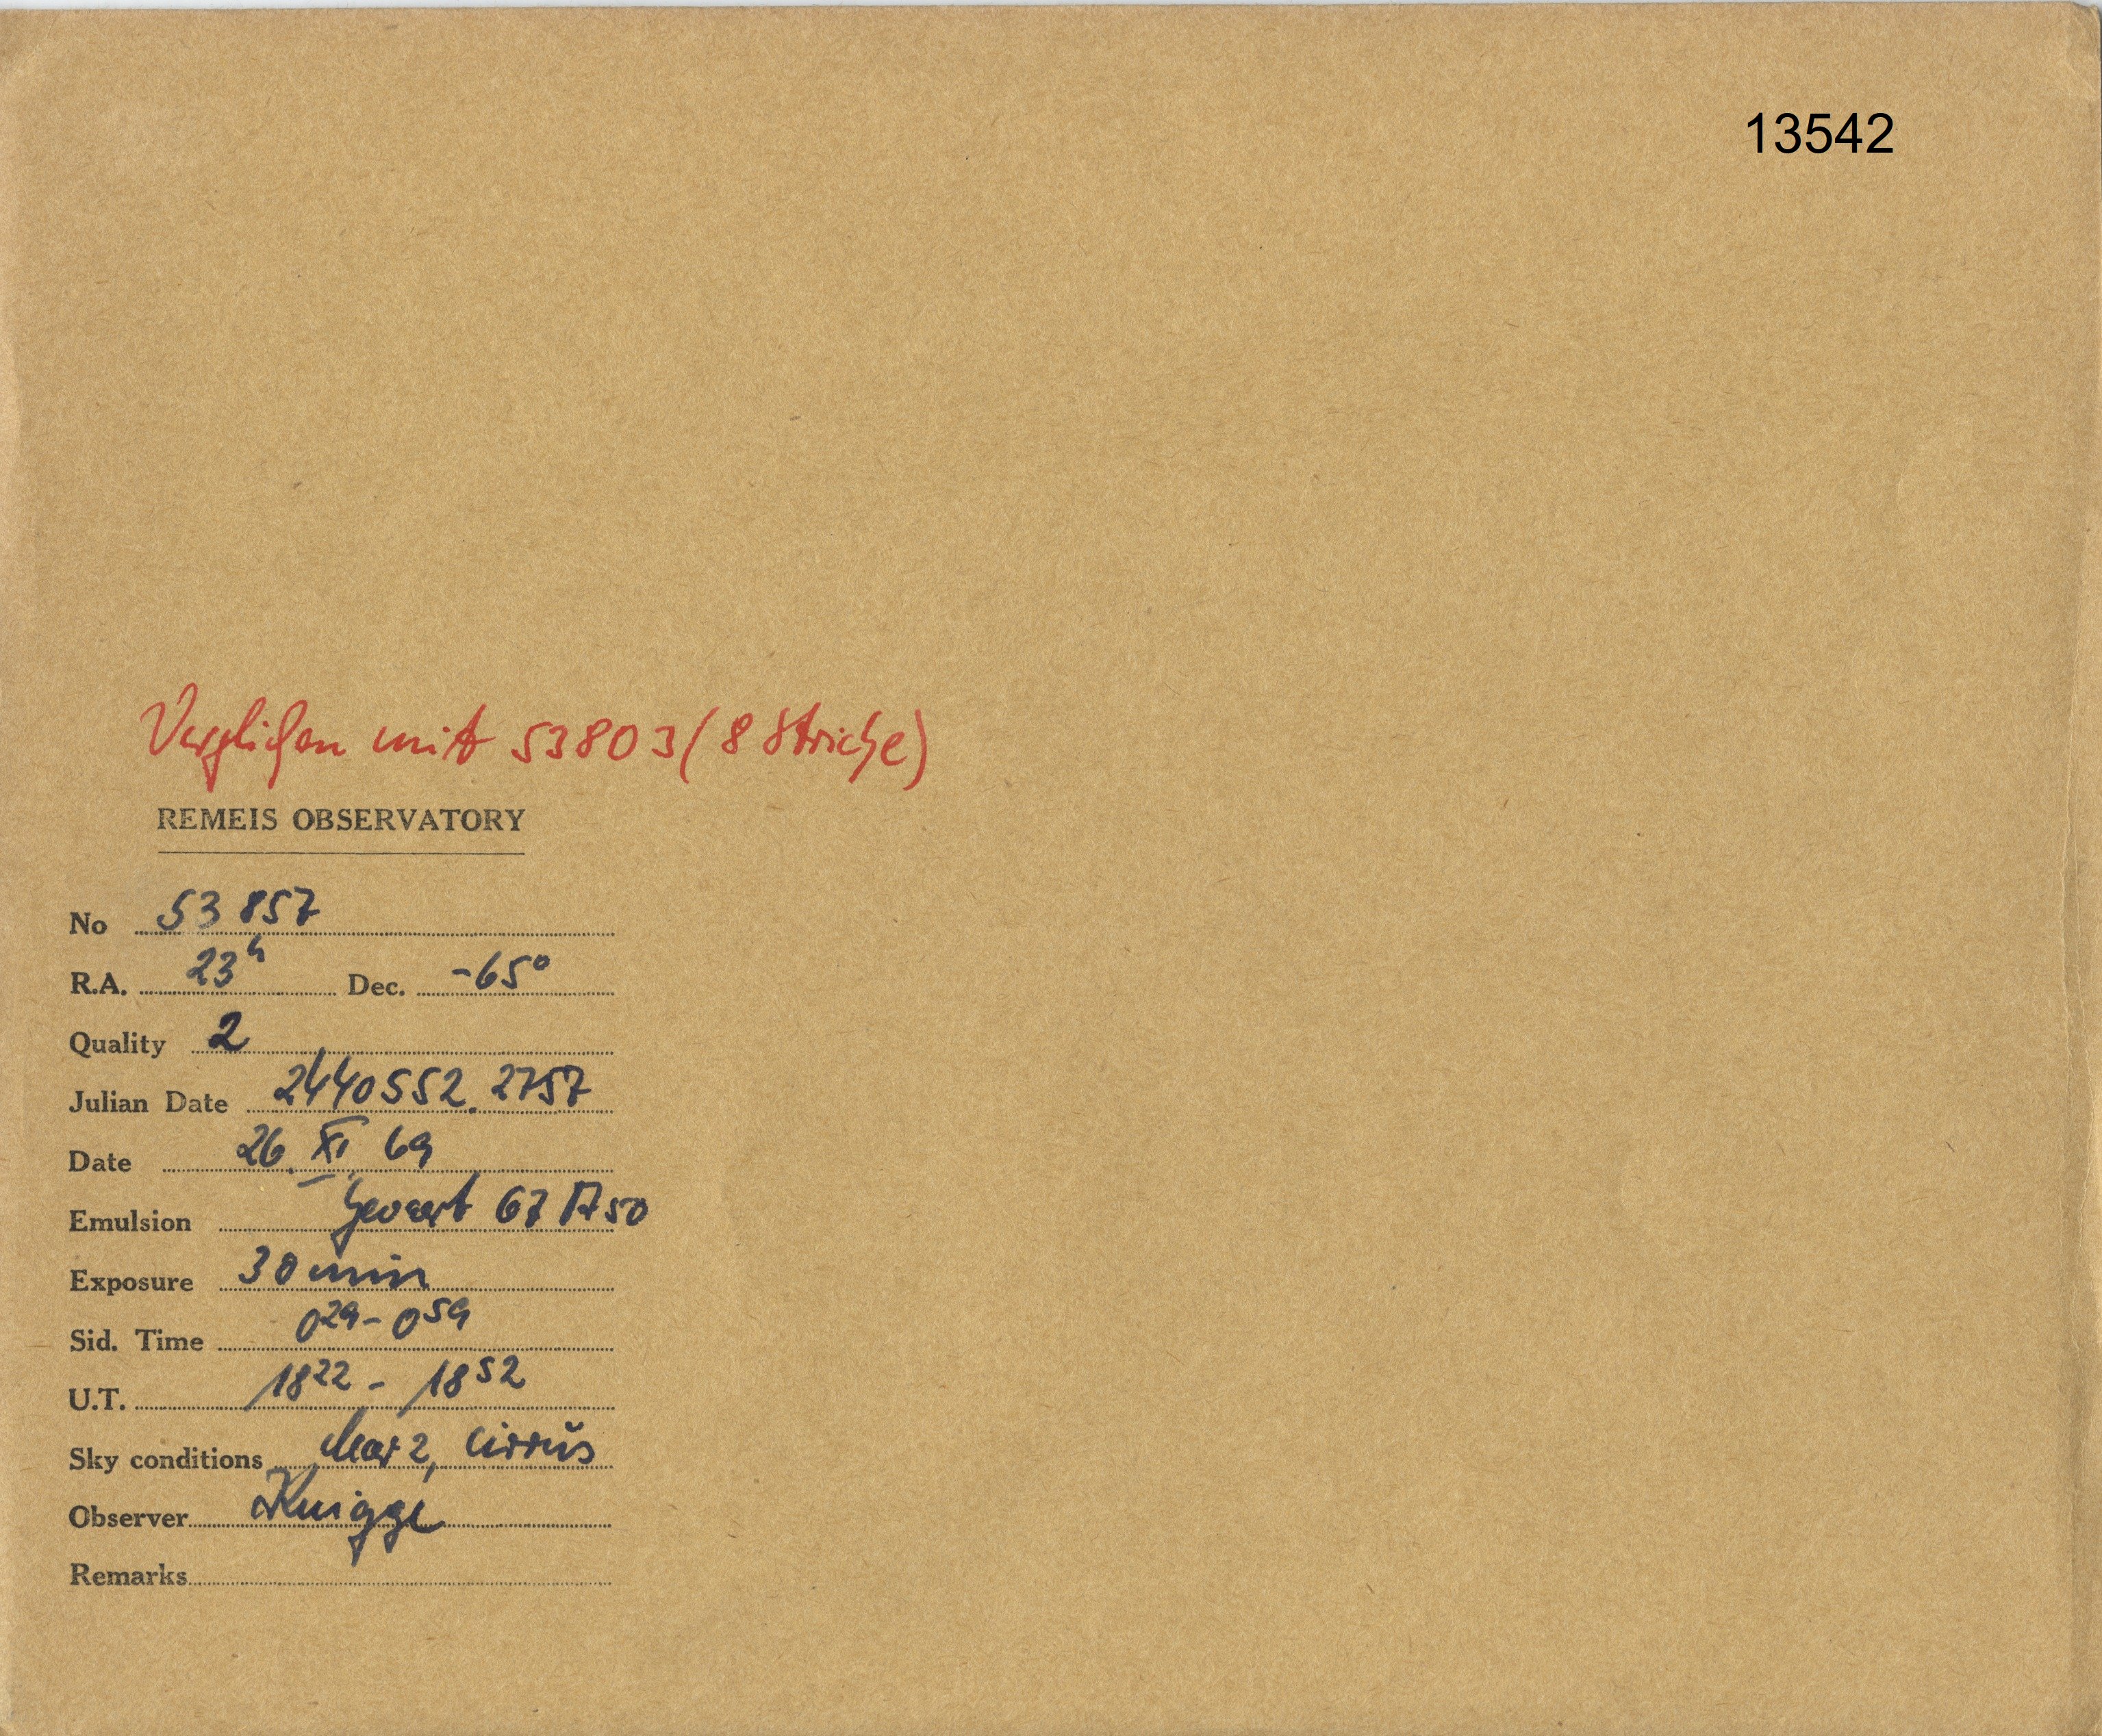 13542
Verglichen mit 53803 (8 Striche)
REMEIS OBSERVATORY
No 53857
R.A. 23h Dec. -65°
Quality 2
Julian Date 2440552.2757
Date 26. XI 69
Emulsion Gevaert 67 A50
Exposure 30 min
Sid. Time 0 29 - 0 59
U.T. 18 22 - 18 52
Sky conditions clear 2, cirrŭs
Observer Knigge
Remarks